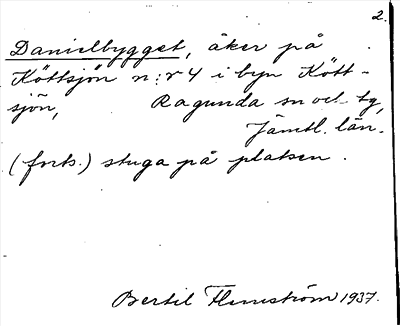 2.
Danielbygget, åker på
Köttsjön n:r 4 i byn Kött-
sjön, Ragunda sn och tg,
Jämtl. län.
(forts.) stuga på platsen.
Bertil Flemström 1937.